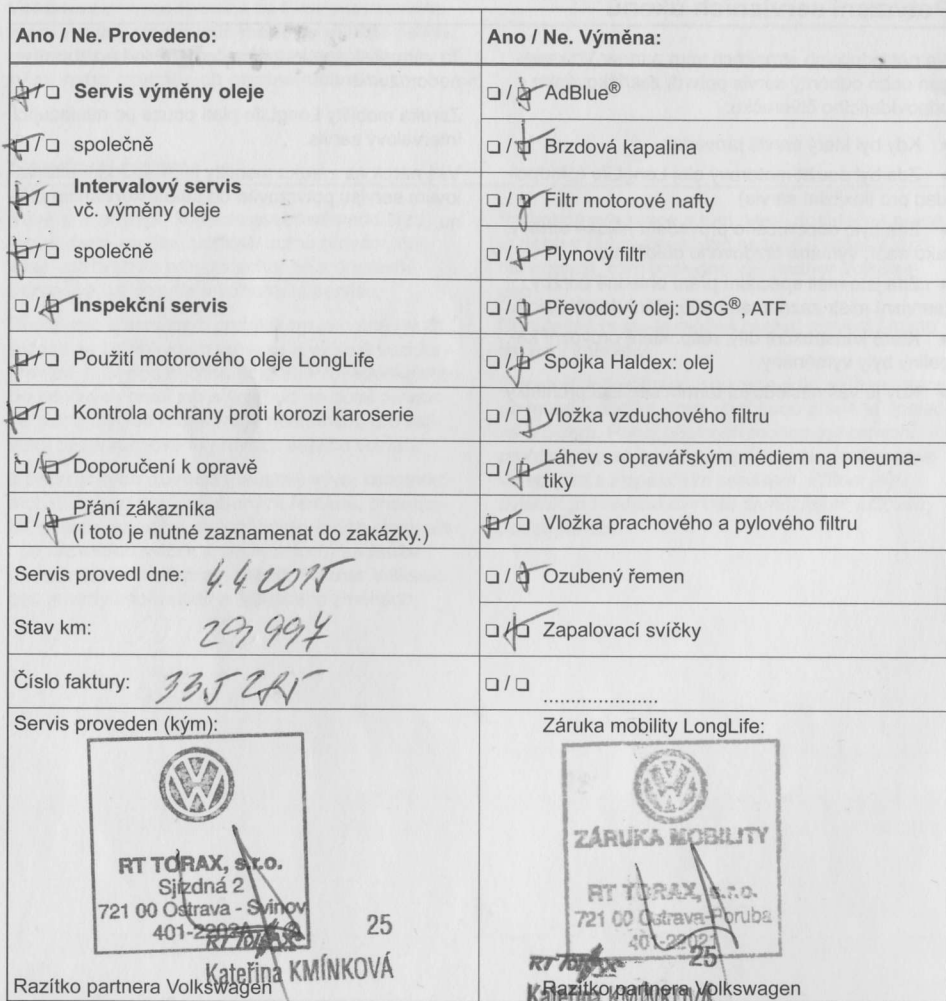 Ano / Ne. Provedeno:
❏ / ❏ Servis výměny oleje
❏ / ❏ společně
❏ / ❏ Intervalový servis
vč. výměny oleje
❏ / ❏ společně
❏ / ❏ Inspekční servis
❏ / ❏ Použití motorového oleje LongLife
❏ / ❏ Kontrola ochrany proti korozi karoserie
❏ / ❏ Doporučení k opravě
❏ / ❏ Přání zákazníka
(i toto je nutné zaznamenat do zakázky.)
Servis provedl dne: 4.4.2015
Stav km: 29 997
Číslo faktury: 335
Servis proveden (kým):
RT TORAX, s.r.o.
Sjízdná 2
721 00 Ostrava - Svinov
RT TORAX
25
Kateřina KMÍNKOVÁ
Razítko partnera Volkswagen
Ano / Ne. Výměna:
❏ / ❏ AdBlue®
❏ / ❏ Brzdová kapalina
❏ / ❏ Filtr motorové nafty
❏ / ❏ Plynový filtr
❏ / ❏ Převodový olej: DSG®, ATF
❏ / ❏ Spojka Haldex: olej
❏ / ❏ Vložka vzduchového filtru
❏ / ❏ Láhev s opravářským médiem na pneuma-
tiky
❏ / ❏ Vložka prachového a pylového filtru
❏ / ❏ Ozubený řemen
❏ / ❏ Zapalovací svíčky
❏ / ❏ .....................
Záruka mobility LongLife:
ZÁRUKA MOBILITY
RT TORAX, s.r.o.
721 00 Ostrava-Poruba
401-22021
RT TORAX
25
Kateřina KMÍNKOVÁ
Razítko partnera Volkswagen